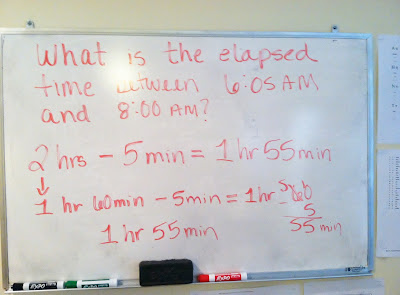 What is the elapsed
time between 6:05 AM
and 8:00 AM?
2 hrs - 5 min = 1 hr 55 min
↓
1 hr 60 min - 5 min = 1 hr 5 6 10
- 5
1 hr 55 min
55 min
EXPO
EXPO